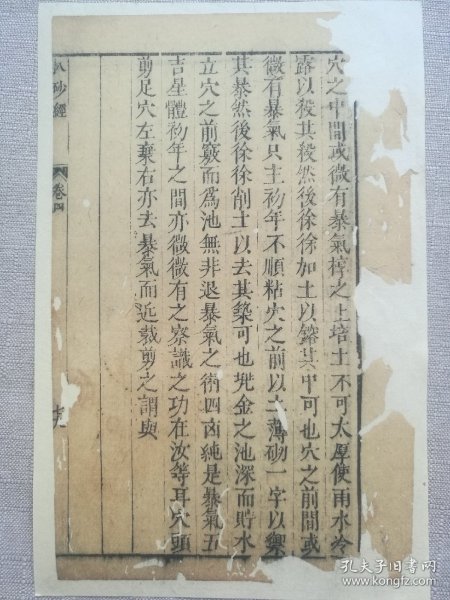 穴之中間或微有暴氣㨃之上培土不可太厚使雨水冷
露以殺其殺然後徐徐加土以鎔其中可也穴之前間或
微有暴氣只主初年不順粘穴之前以土薄砌一字以禦
其暴然後徐徐削土以去其築可也兠金之池深而貯水
立穴之前竅而為池無非退暴氣之術四凶純是暴氣五
吉星體初年之間亦微微有之察識之功在汝等耳穴頭
剪足穴左棄右亦去暴氣而近裁剪之謂與
扒砂經
卷四
孔夫子旧书网
www.kongfz.com